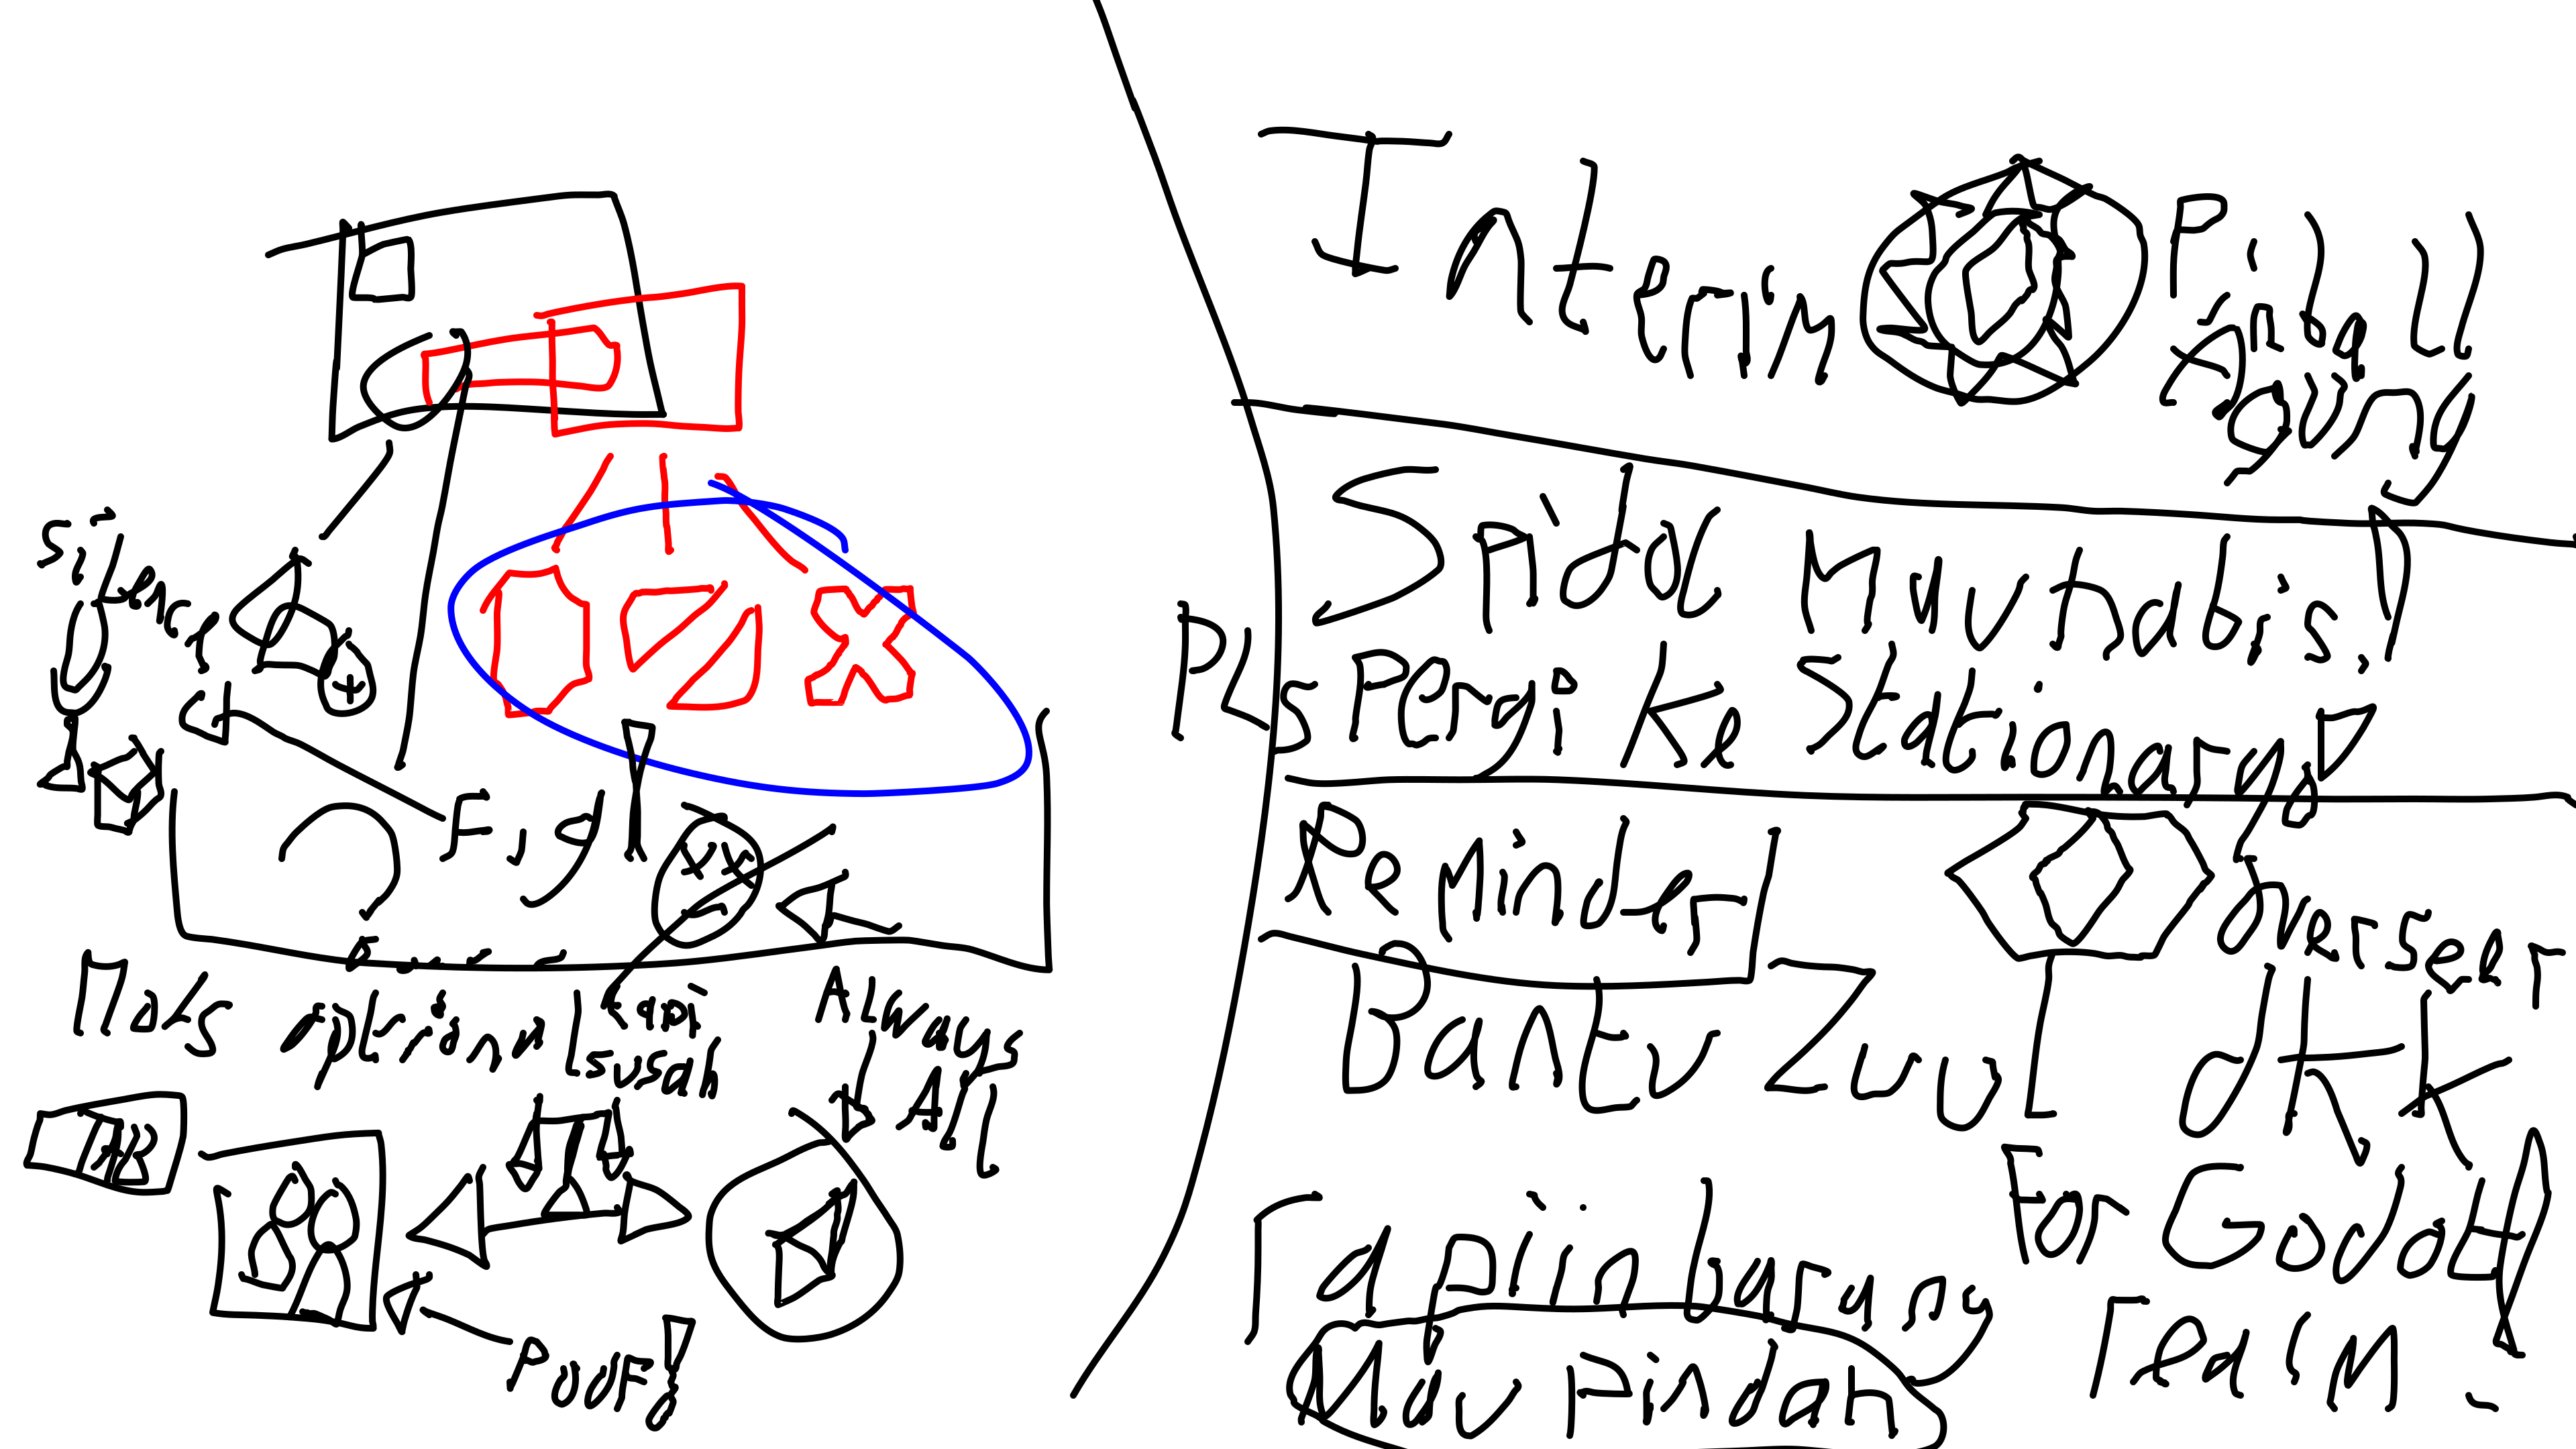 silence!
Mols optional tapi susah
Always
All
Poof!
Interim
Pinball
Agung
Spidol Mau habis!
Pls Pergi ke Stationary!
Reminder
Overseer
Bantu Zuul dkk
For Godot Team
rapiin barang
Mau pindah